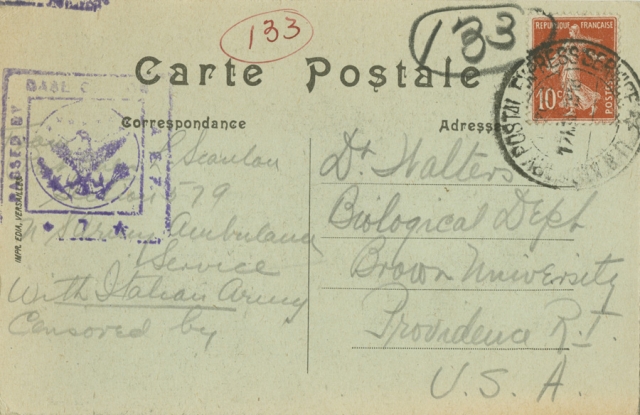 133
133
Carte Postale
Correspondance
Adresse
RÉPUBLIQUE FRANÇAISE
10c
POSTES
POSTAL EXPRESS SERVICE
PASSED BY
BASE
A.E.F.
★ 7 ★
IMPR. EDIA, VERSAILLES
Scanlon
579
U S Army Ambulance
Service
With Italian Army
Censored by
Dr Walters
Biological Dept
Brown University
Providence R.I.
U. S. A.